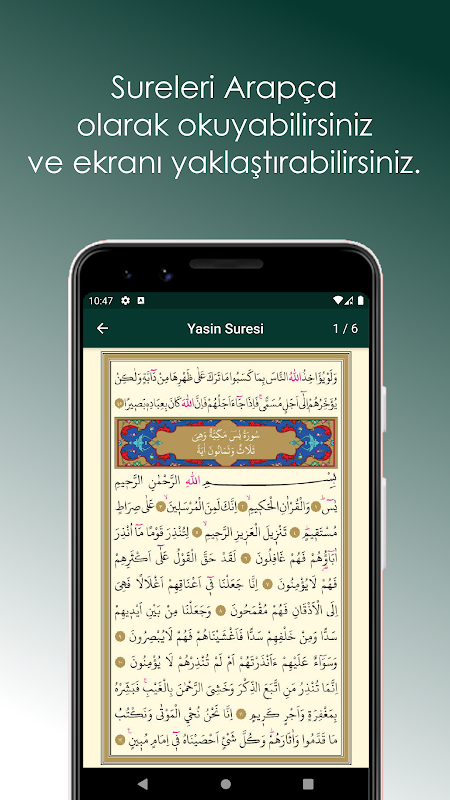 Sureleri Arapça
olarak okuyabilirsiniz
ve ekranı yaklaştırabilirsiniz.
10:47
Yasin Suresi
1 / 6
وَلَوْ يُؤَاخِذُ اللّٰهُ النَّاسَ بِمَا كَسَبُوا مَا تَرَكَ عَلٰى ظَهْرِهَا مِنْ دَٓابَّةٍ وَلٰكِنْ
يُؤَخِّرُهُمْ اِلٰٓى اَجَلٍ مُسَمًّىۚ فَاِذَا جَٓاءَ اَجَلُهُمْ فَاِنَّ اللّٰهَ كَانَ بِعِبَادِهٖ بَصٖيرًا ﴿٤٥﴾
سُورَةُ يٰسٓ مَكِّيَّةٌ وَهِىَ
ثَلَاثٌ وَثَمَانُونَ اٰيَةً
بِسْمِ اللّٰهِ الرَّحْمٰنِ الرَّحٖيمِ
يٰسٓۜ ﴿١﴾ وَالْقُرْاٰنِ الْحَكٖيمِۙ ﴿٢﴾ اِنَّكَ لَمِنَ الْمُرْسَلٖينَۙ ﴿٣﴾ عَلٰى صِرَاطٍ
مُسْتَقٖيمٍۜ ﴿٤﴾ تَنْزٖيلَ الْعَزٖيزِ الرَّحٖيمِۙ ﴿٥﴾ لِتُنْذِرَ قَوْمًا مَٓا اُنْذِرَ
اٰبَٓاؤُهُمْ فَهُمْ غَافِلُونَ ﴿٦﴾ لَقَدْ حَقَّ الْقَوْلُ عَلٰٓى اَكْثَرِهِمْ
فَهُمْ لَا يُؤْمِنُونَ ﴿٧﴾ اِنَّا جَعَلْنَا فٖٓى اَعْنَاقِهِمْ اَغْلَالًا فَهِىَ
اِلَى الْاَذْقَانِ فَهُمْ مُقْمَحُونَ ﴿٨﴾ وَجَعَلْنَا مِنْ بَيْنِ اَيْدٖيهِمْ
سَدًّا وَمِنْ خَلْفِهِمْ سَدًّا فَاَغْشَيْنَاهُمْ فَهُمْ لَا يُبْصِرُونَ ﴿٩﴾
وَسَوَٓاءٌ عَلَيْهِمْ ءَاَنْذَرْتَهُمْ اَمْ لَمْ تُنْذِرْهُمْ لَا يُؤْمِنُونَ ﴿١٠﴾
اِنَّمَا تُنْذِرُ مَنِ اتَّبَعَ الذِّكْرَ وَخَشِىَ الرَّحْمٰنَ بِالْغَيْبِۚ فَبَشِّرْهُ
بِمَغْفِرَةٍ وَاَجْرٍ كَرٖيمٍ ﴿١١﴾ اِنَّا نَحْنُ نُحْيِ الْمَوْتٰى وَنَكْتُبُ
مَا قَدَّمُوا وَاٰثَارَهُمْۜ وَكُلَّ شَىْءٍ اَحْصَيْنَاهُ فٖٓى اِمَامٍ مُبٖينٍ۟ ﴿١٢﴾